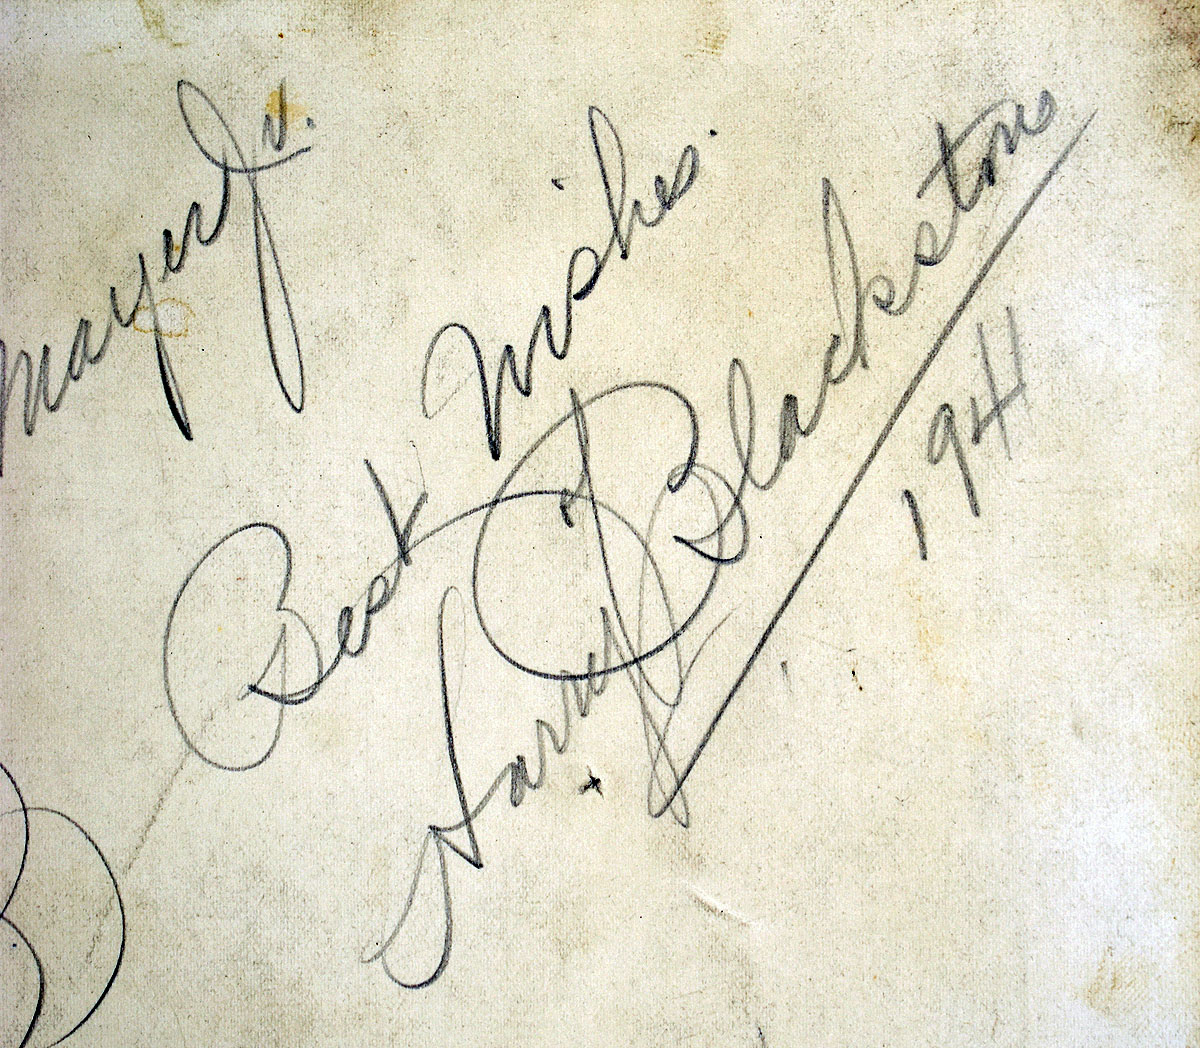 Mayer Jr.
Best Wishes.
Harry Blackstone
1944